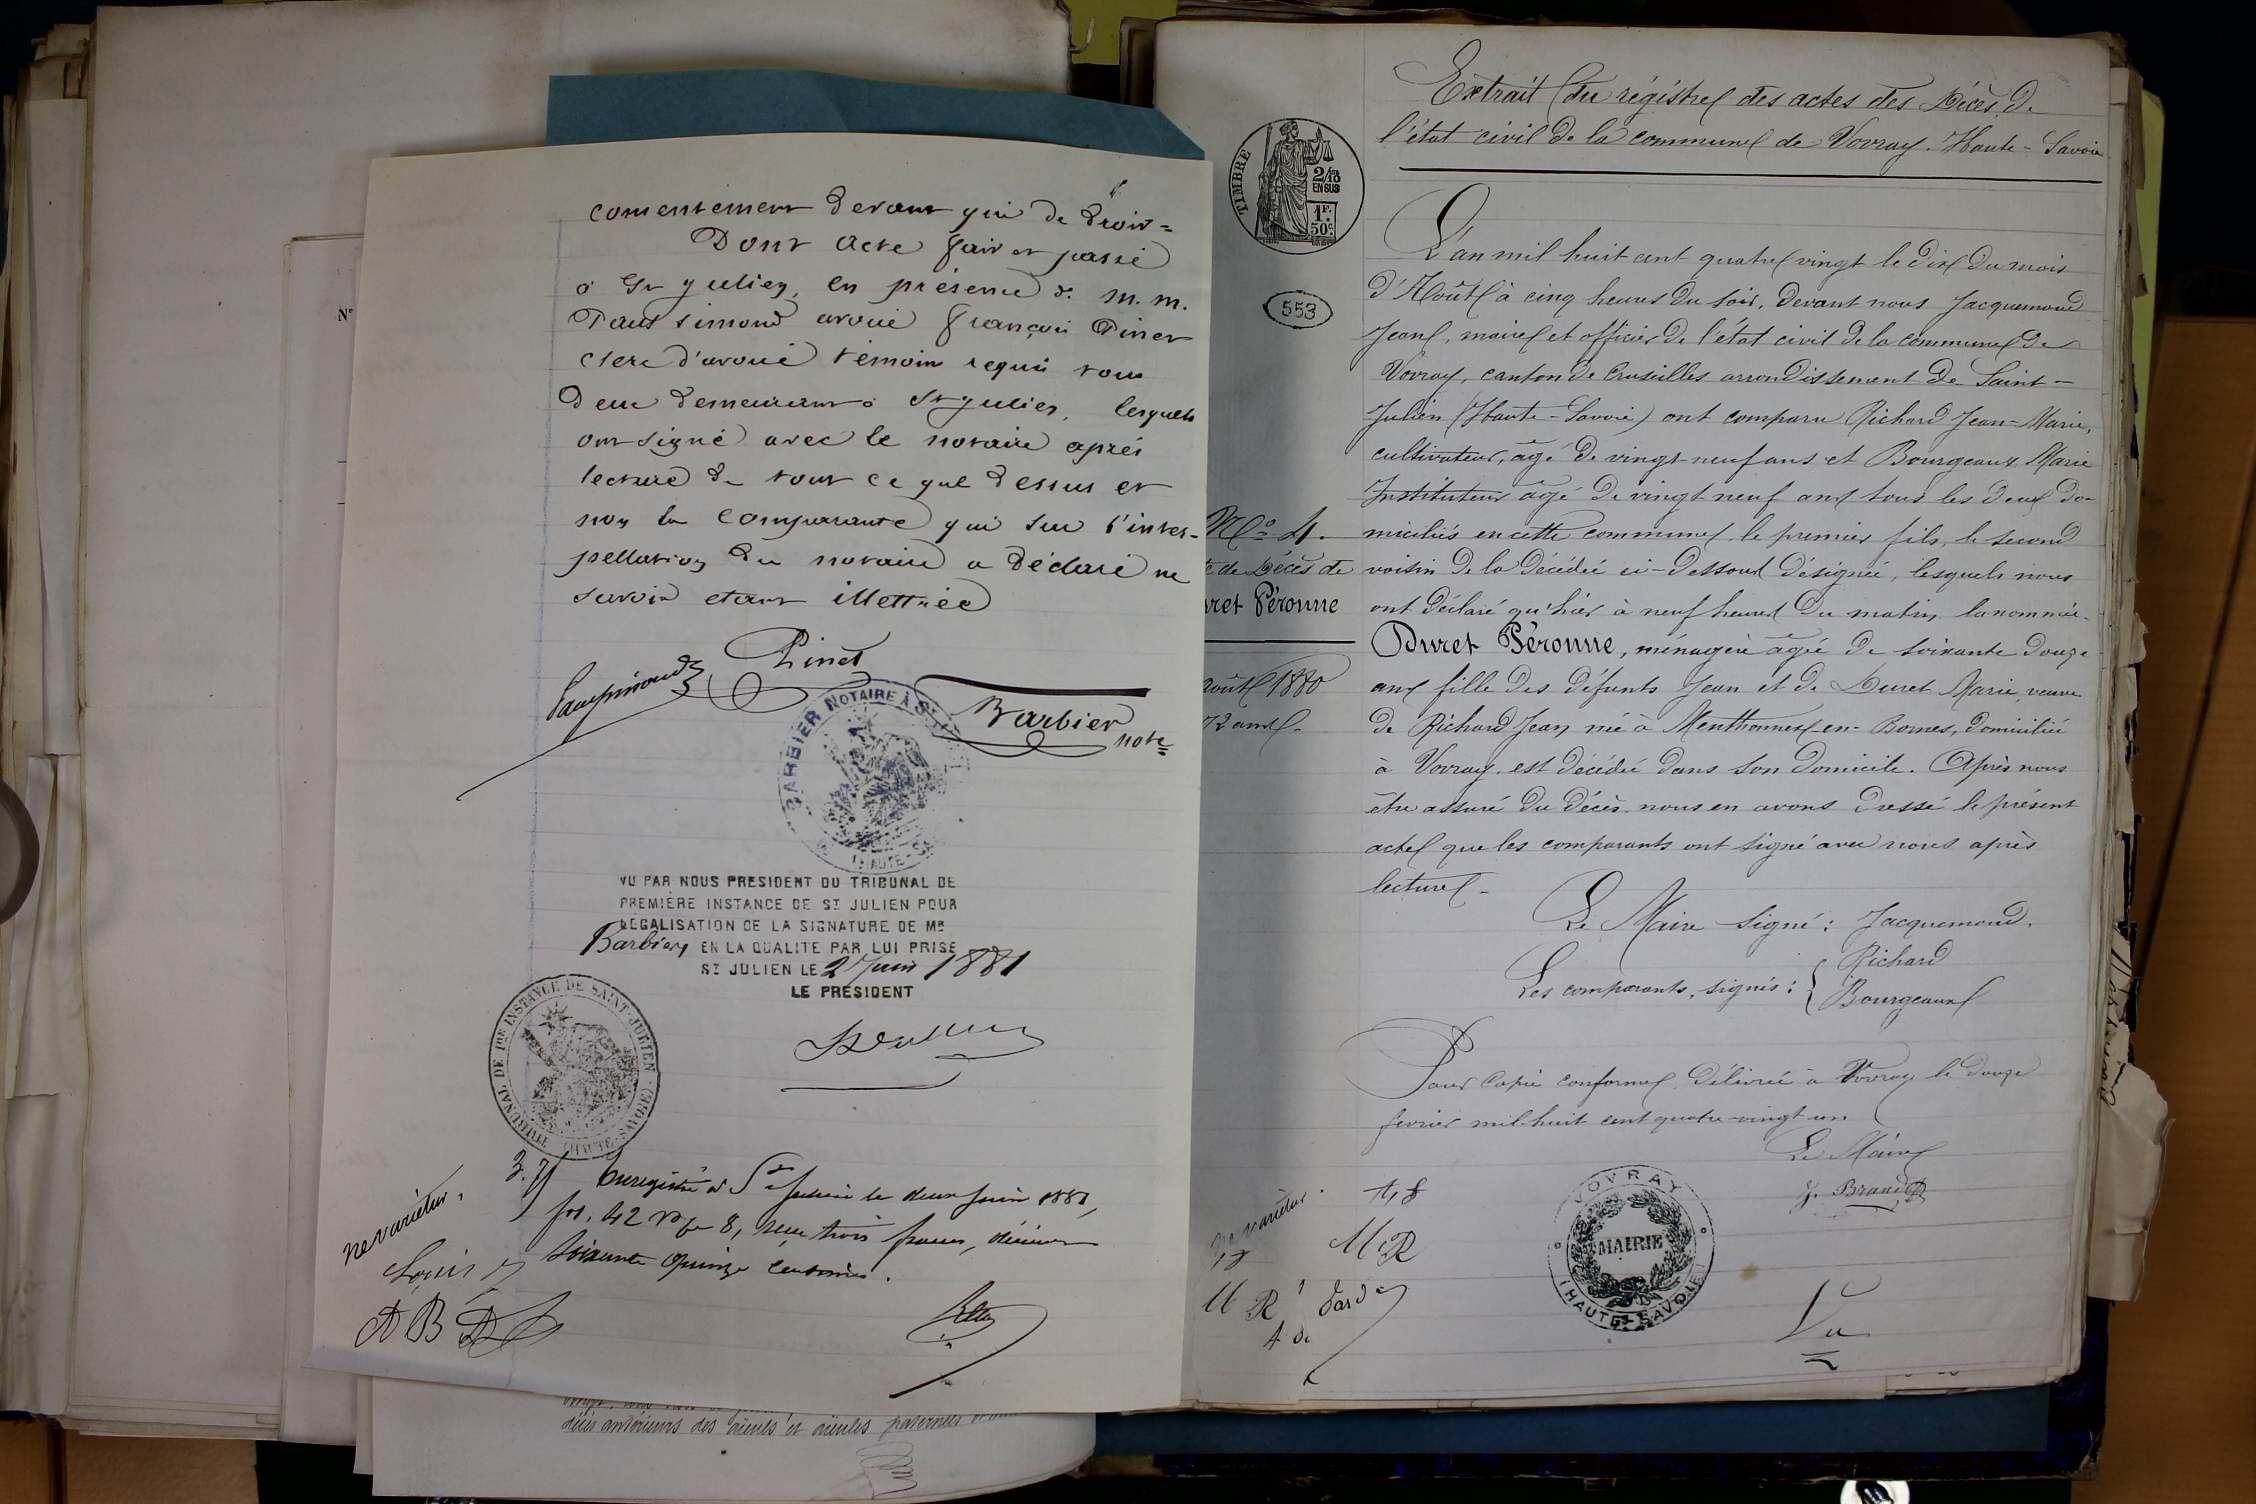 consentement devant qui de droit =
Dont Acte fait et passé
à St Julien, en présence de M. M.
Paul Simond avoué François Pinet
clerc d'avoué témoin requis tous
deux demeurant à St Julien, lesquels
ont signé avec le notaire après
lecture de tout ce que dessus et
non la comparante qui sur l'inter-
pellation du notaire a déclaré ne
savoir etant illettrée
Paul Simond
Pinet
Barbier
note
BARBIER NOTAIRE À ST
VU PAR NOUS PRESIDENT DU TRIBUNAL DE
PREMIÈRE INSTANCE DE ST JULIEN POUR
LÉGALISATION DE LA SIGNATURE DE MR
Barbier EN LA QUALITE PAR LUI PRISE
ST JULIEN LE 2 Juin 1881
LE PRÉSIDENT
TRIBUNAL DE 1RE INSTANCE DE SAINT-JULIEN (HAUTE-SAVOIE)
3. 75 Enregistré à St Julien le deux juin 1881,
fol. 42 Vo ce 8, reçu trois francs, décimes
soixante quinze centimes.
ne varietur.
Louis
A B D
N°
décès antérieurs des aïeuls et aïeules paternels
Extrait du régistre des actes des Décès de
l'état civil de la commune de Vovray. Haute-Savoie
TIMBRE
2/10
EN SUS
1F.
50c.
553
L'an mil huit cent quatre vingt le dix du mois
d'Août à cinq heures du soir. Devant nous Jacquemoud
Jean, maire et officier de l'état civil de la commune de
Vovray, canton de Cruseilles arrondissement de Saint-
Julien (Haute-Savoie) ont comparu Richard Jean-Marie,
cultivateur, agé de vingt neuf ans et Bourgeaux Marie
Instituteur agé de vingt neuf ans tous les deux do-
miciliés en cette commune le premier fils, le second
voisin de la décédée ci-dessous désignée, lesquels nous
ont déclaré qu'hier à neuf heures du matin la nommée
Duret Péronne, ménagère agée de soixante douze
ans fille des défunts Jean et de Duret Marie, veuve
de Richard Jean née à Menthonnex-en-Bornes, domiciliée
à Vovray, est décédée dans son domicile. Après nous
être assuré du décès nous en avons dressé le présent
acte que les comparants ont signé avec nous après
lecture.
No 4.
te de Décès de
ret Péronne
août 1880
72 ans.
Le Maire signé: Jacquemoud.
Les comparants, signés: { Richard
Bourgeaux
Pour copie conforme. Délivrée à Vovray le douze
fevrier mil-huit cent quatre-vingt un
Le Maire
VOVRAY
MAIRIE
(HAUTE-SAVOIE)
ne varietur.
M R
Vu